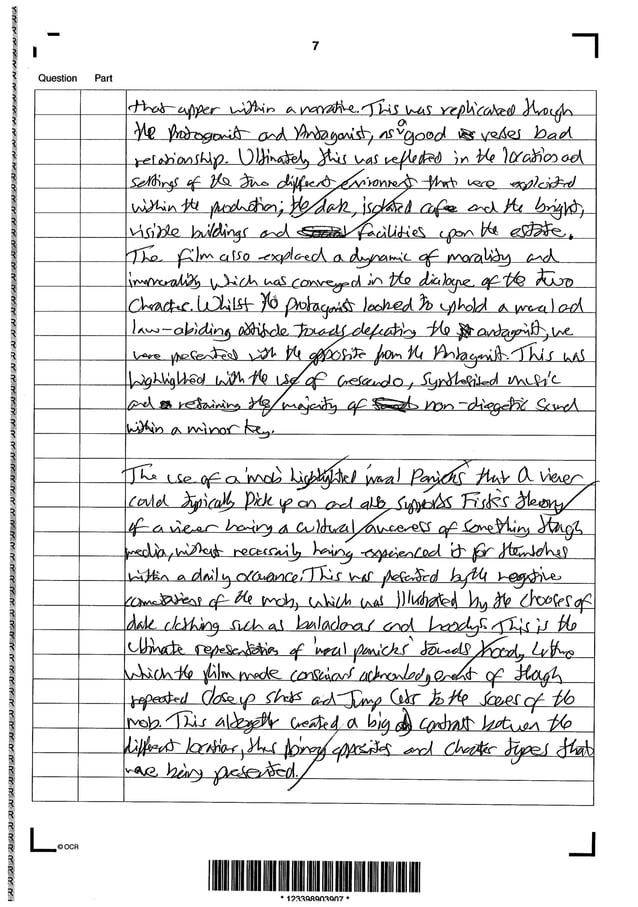 7
Question Part
that apper within a narrative. This was replicated though
the Protogonist and Antagonist, as a good verses bad
relationship. Ultimately this was reflected in the locations ad
settings of the two different environment that were exploited
within the production; the dark, isolated cafe and the bright,
visible buildings and facilities upon the estate.
The film also explored a dynamic of morality and
immorality which was conveyed in the dialogue of the two
Character. Whilst the protagonist looked to uphold a moral ad
law-abiding attitude towards defeating the antagonist, we
were presented with the opposite from the Antagonist. This was
highlighted with the use of crescendo, synthesised music
and retaining the majority of non-diegetic sound
within a minor key.
The use of a 'mob' highlighted 'moral panicks' that a viewer
could typically pick up on and also supports Fiske's theory
of a viewer having a cultural awareness of something though
media, without necessarily having experienced it for themselves
within a daily occurance. This was presented by the negative
connotations of the mob, which was illustrated by the chooses of
dark clothing such as balaclavas and hoody's. This is the
ultimate representation of 'moral panicks' towards hoody culture
which the film made conscious acknowledgement of though
repeated close up shots and Jump Cuts to the scenes of the
mob. This altogether created a big contrast between the
different location, thus binary opposites and character types that
were being presented.
© OCR
* 123398903907 *